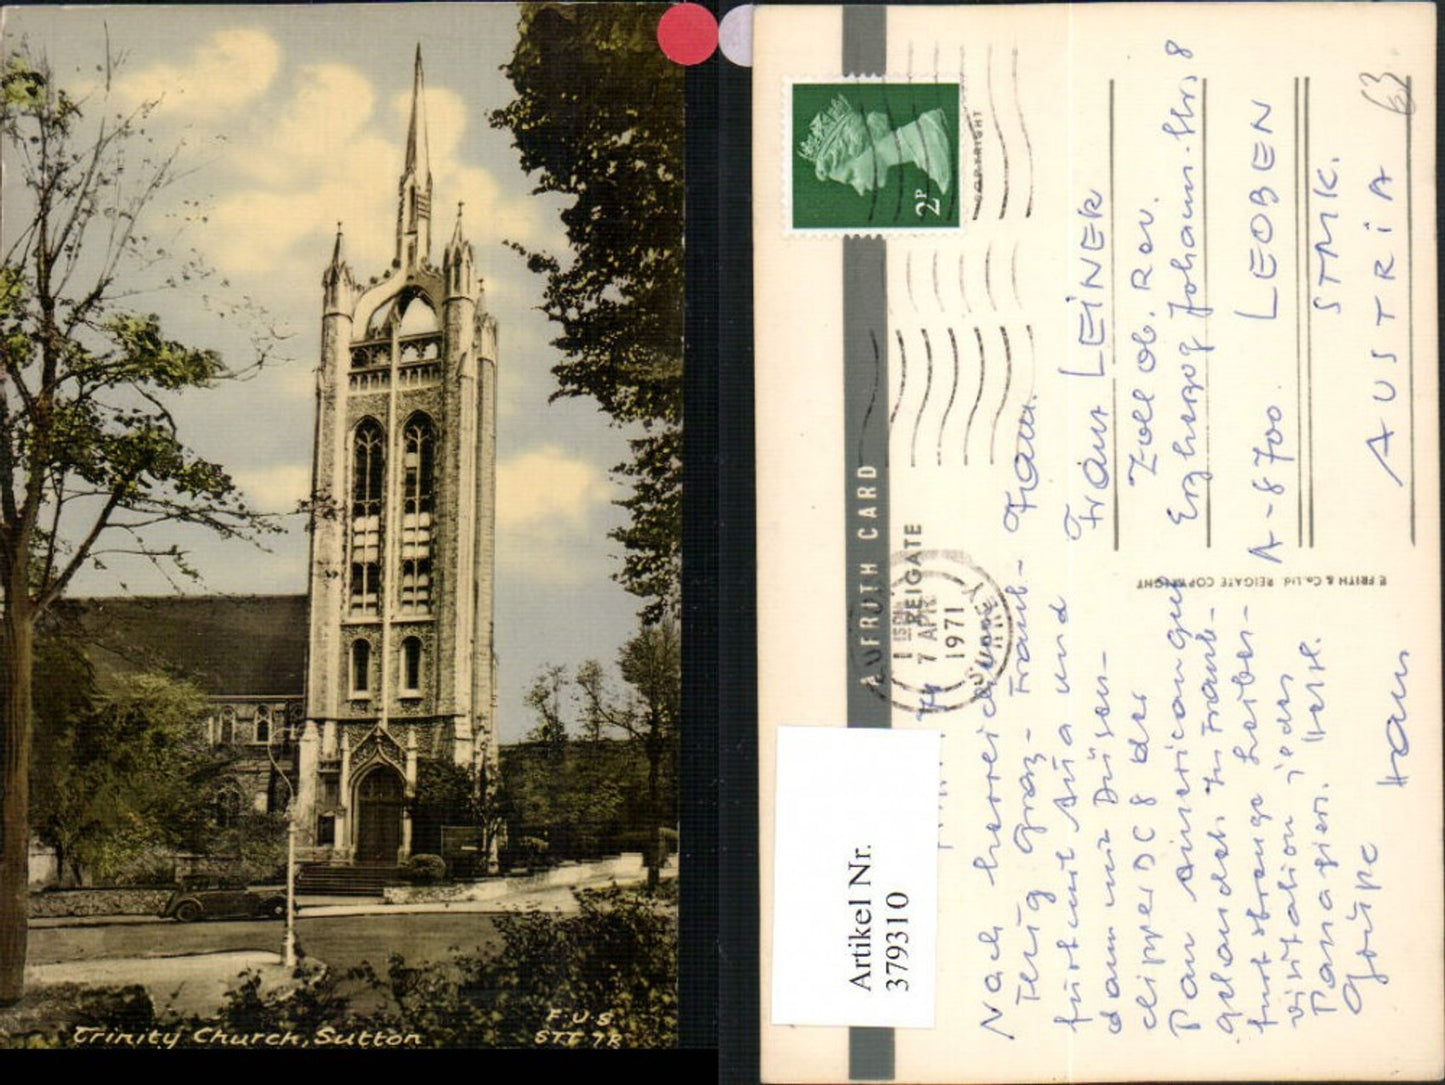 Trinity Church, Sutton
F.U.S.
STT 7R
A FRITH CARD
COPYRIGHT
2P
REIGATE
7 APR
1971
SURREY
Artikel Nr.
379310
63
Frau LEINER
Zoll Ob. Rev.
Erzherzog Johann-Str. 8
A-8700 LEOBEN
STMK.
AUSTRIA
F. FRITH & Co. Ltd. REIGATE COPYRIGHT
Nach
Flug Graz - Frank-
furt mit AUA und
dann mit Düsen-
clipper DC 8 der
Pan American gut
gelandet. In Frank-
furt strenge Leibes-
visitation jedes
Passagiers.
Grüße